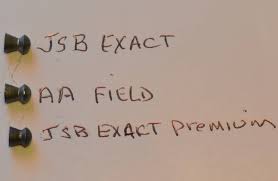 JSB EXACT
AA FIELD
JSB EXACT Premium